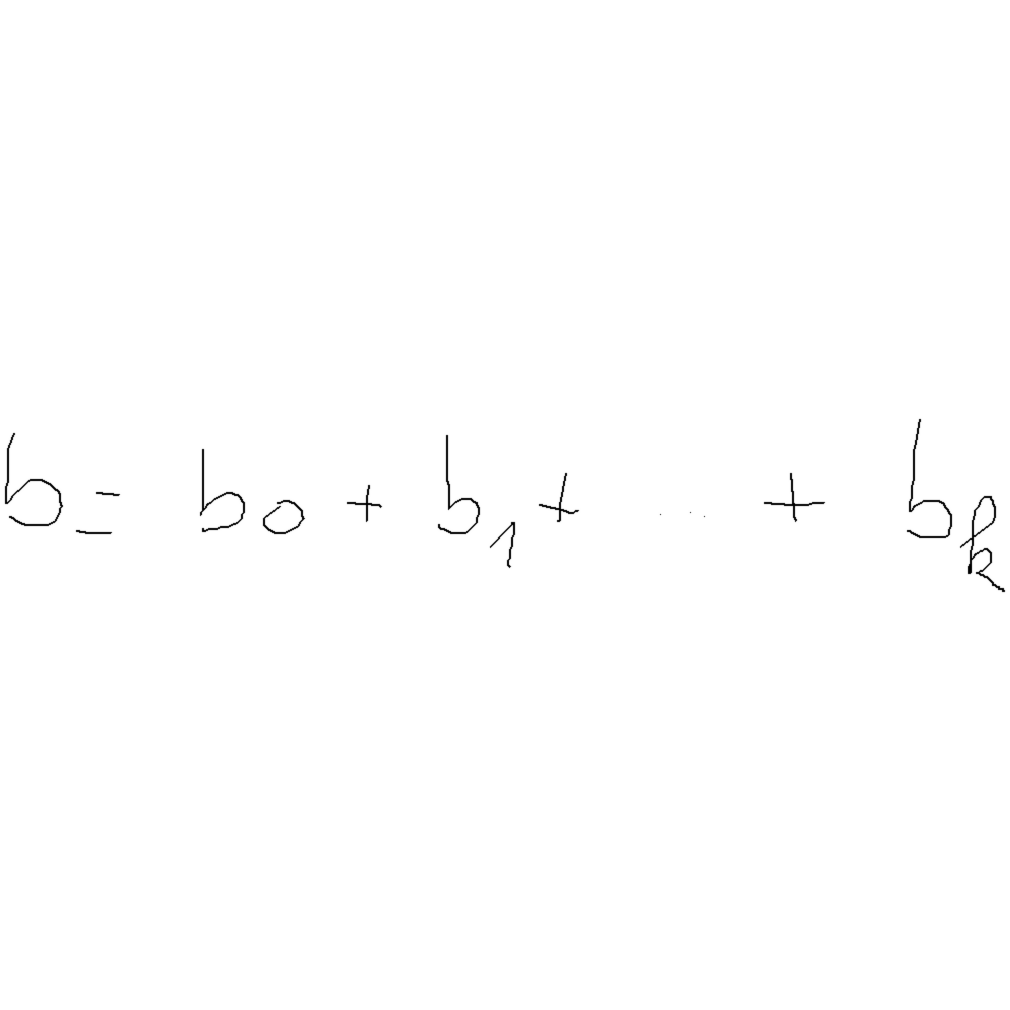 b = b₀ + b₁ + ... + bₖ